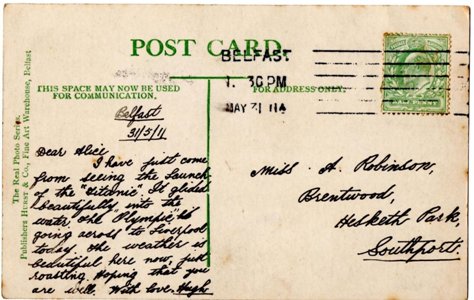 POST CARD.
BELFAST
1. 30 PM
MAY 31 11
THIS SPACE MAY NOW BE USED
FOR COMMUNICATION.
FOR ADDRESS ONLY.
The Real Photo Series.
Publishers HURST & Co. Fine Art Warehouse, Belfast
Belfast
31/5/11
Dear Alice
I have just come
from seeing the launch
of the "Titanic". It glided
beautifully into the
water. The "Olympic" is
going across to Liverpool
today. The weather is
beautiful here now, just
roasting. Hoping that you
are well. With love. Hugh
Miss A. Robinson,
Brentwood,
Hesketh Park,
Southport.